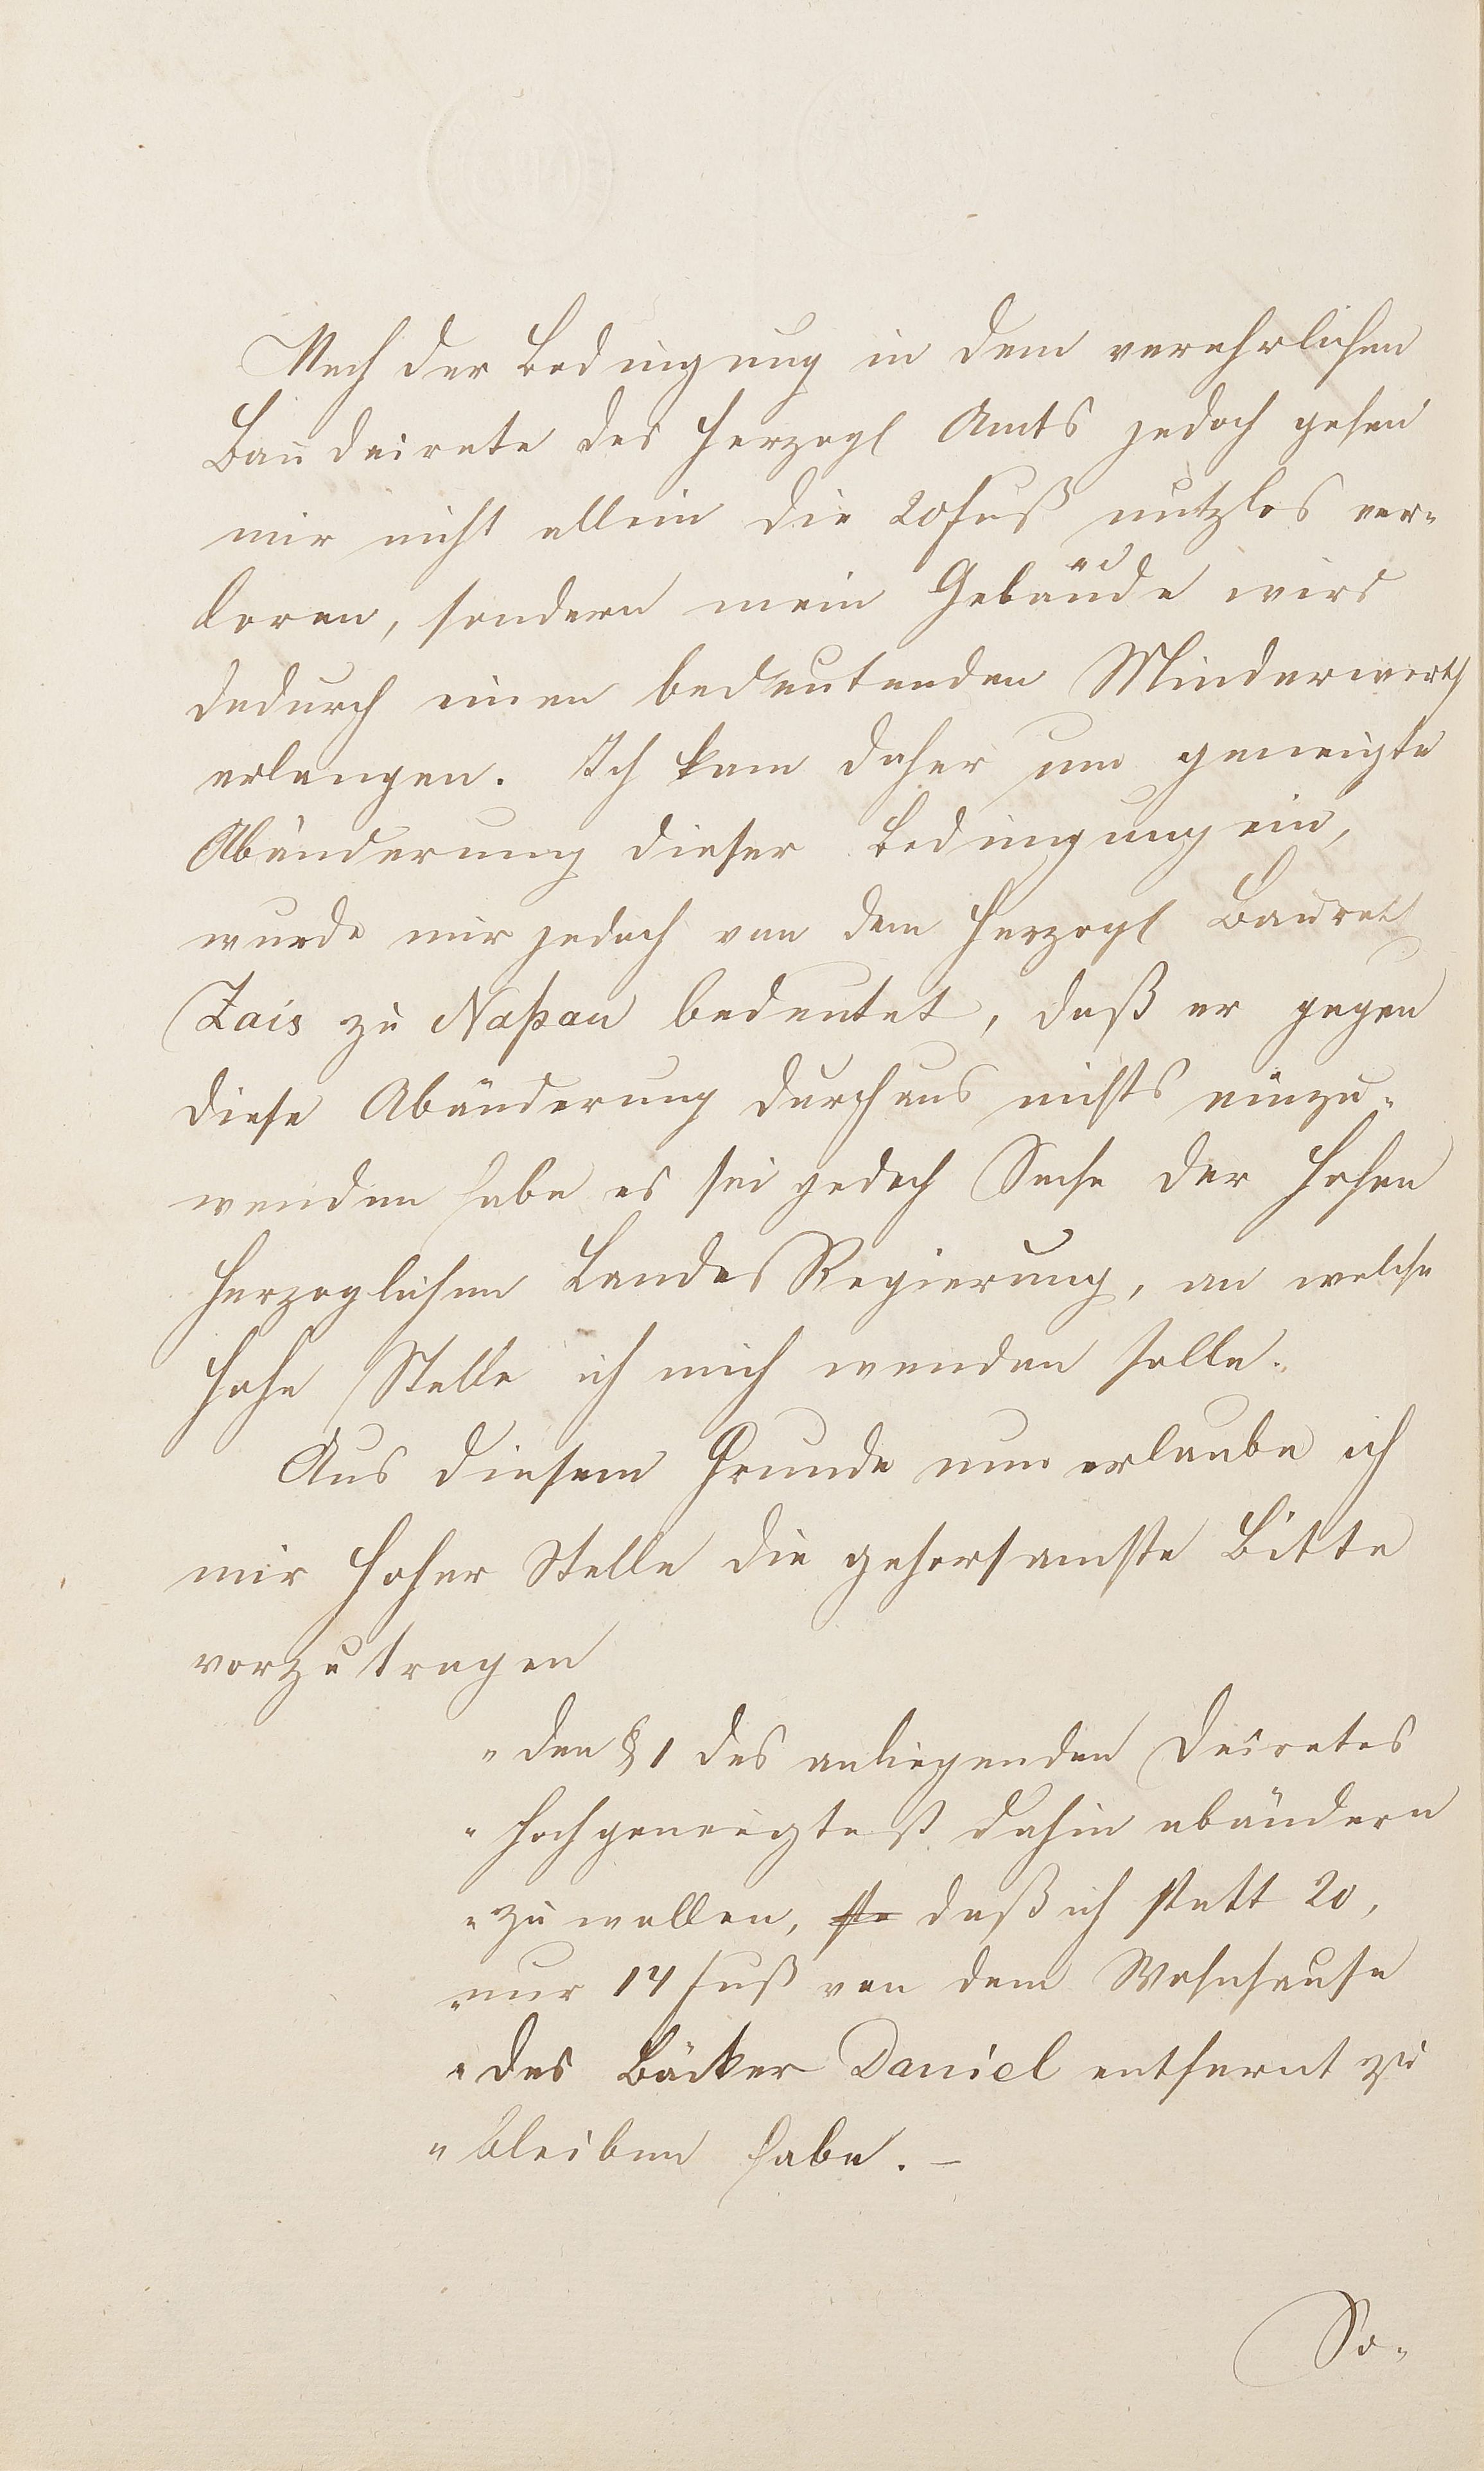 Nach der Bedingung in dem verehrlichen
Baudecrete des Herzogl Amts jedoch gehen
mir nicht allein die 20 Fuß nutzlos ver-
loren, sondern mein Gebäude wird
dadurch einen bedeutenden Minderwerth
erlangen. Ich kam daher um geneigte
Abänderung dieser Bedingung ein,
wurde mir jedoch von dem Herzogl Baurath
Zais zu Naßau bedeutet, daß er gegen
diese Abänderung durchaus nichts einzu-
wenden habe es sei jedoch Sache der Hohen
Herzoglichen Landes Regierung, an welche
hohe Stelle ich mich wenden solle.
Aus diesem Grunde nun erlaube ich
mir hoher Stelle die gehorsamste Bitte
vorzutragen
"den § 1 des anliegenden Decretes
"hochgeneigtest dahin abändern
"zu wollen, daß ich statt 20,
"nur 14 Fuß von dem Wohnhause
"des Bäcker Daniel entfernt zu
"bleiben habe. –
So-